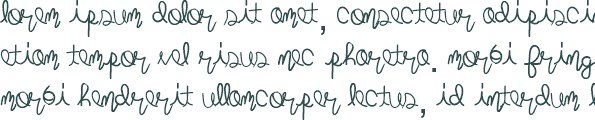 lorem ipsum dolor sit amet, consectetur adipisci
etiam tempor vel risus nec pharetra. morbi fring
morbi hendrerit ullamcorper lectus, id interdum l